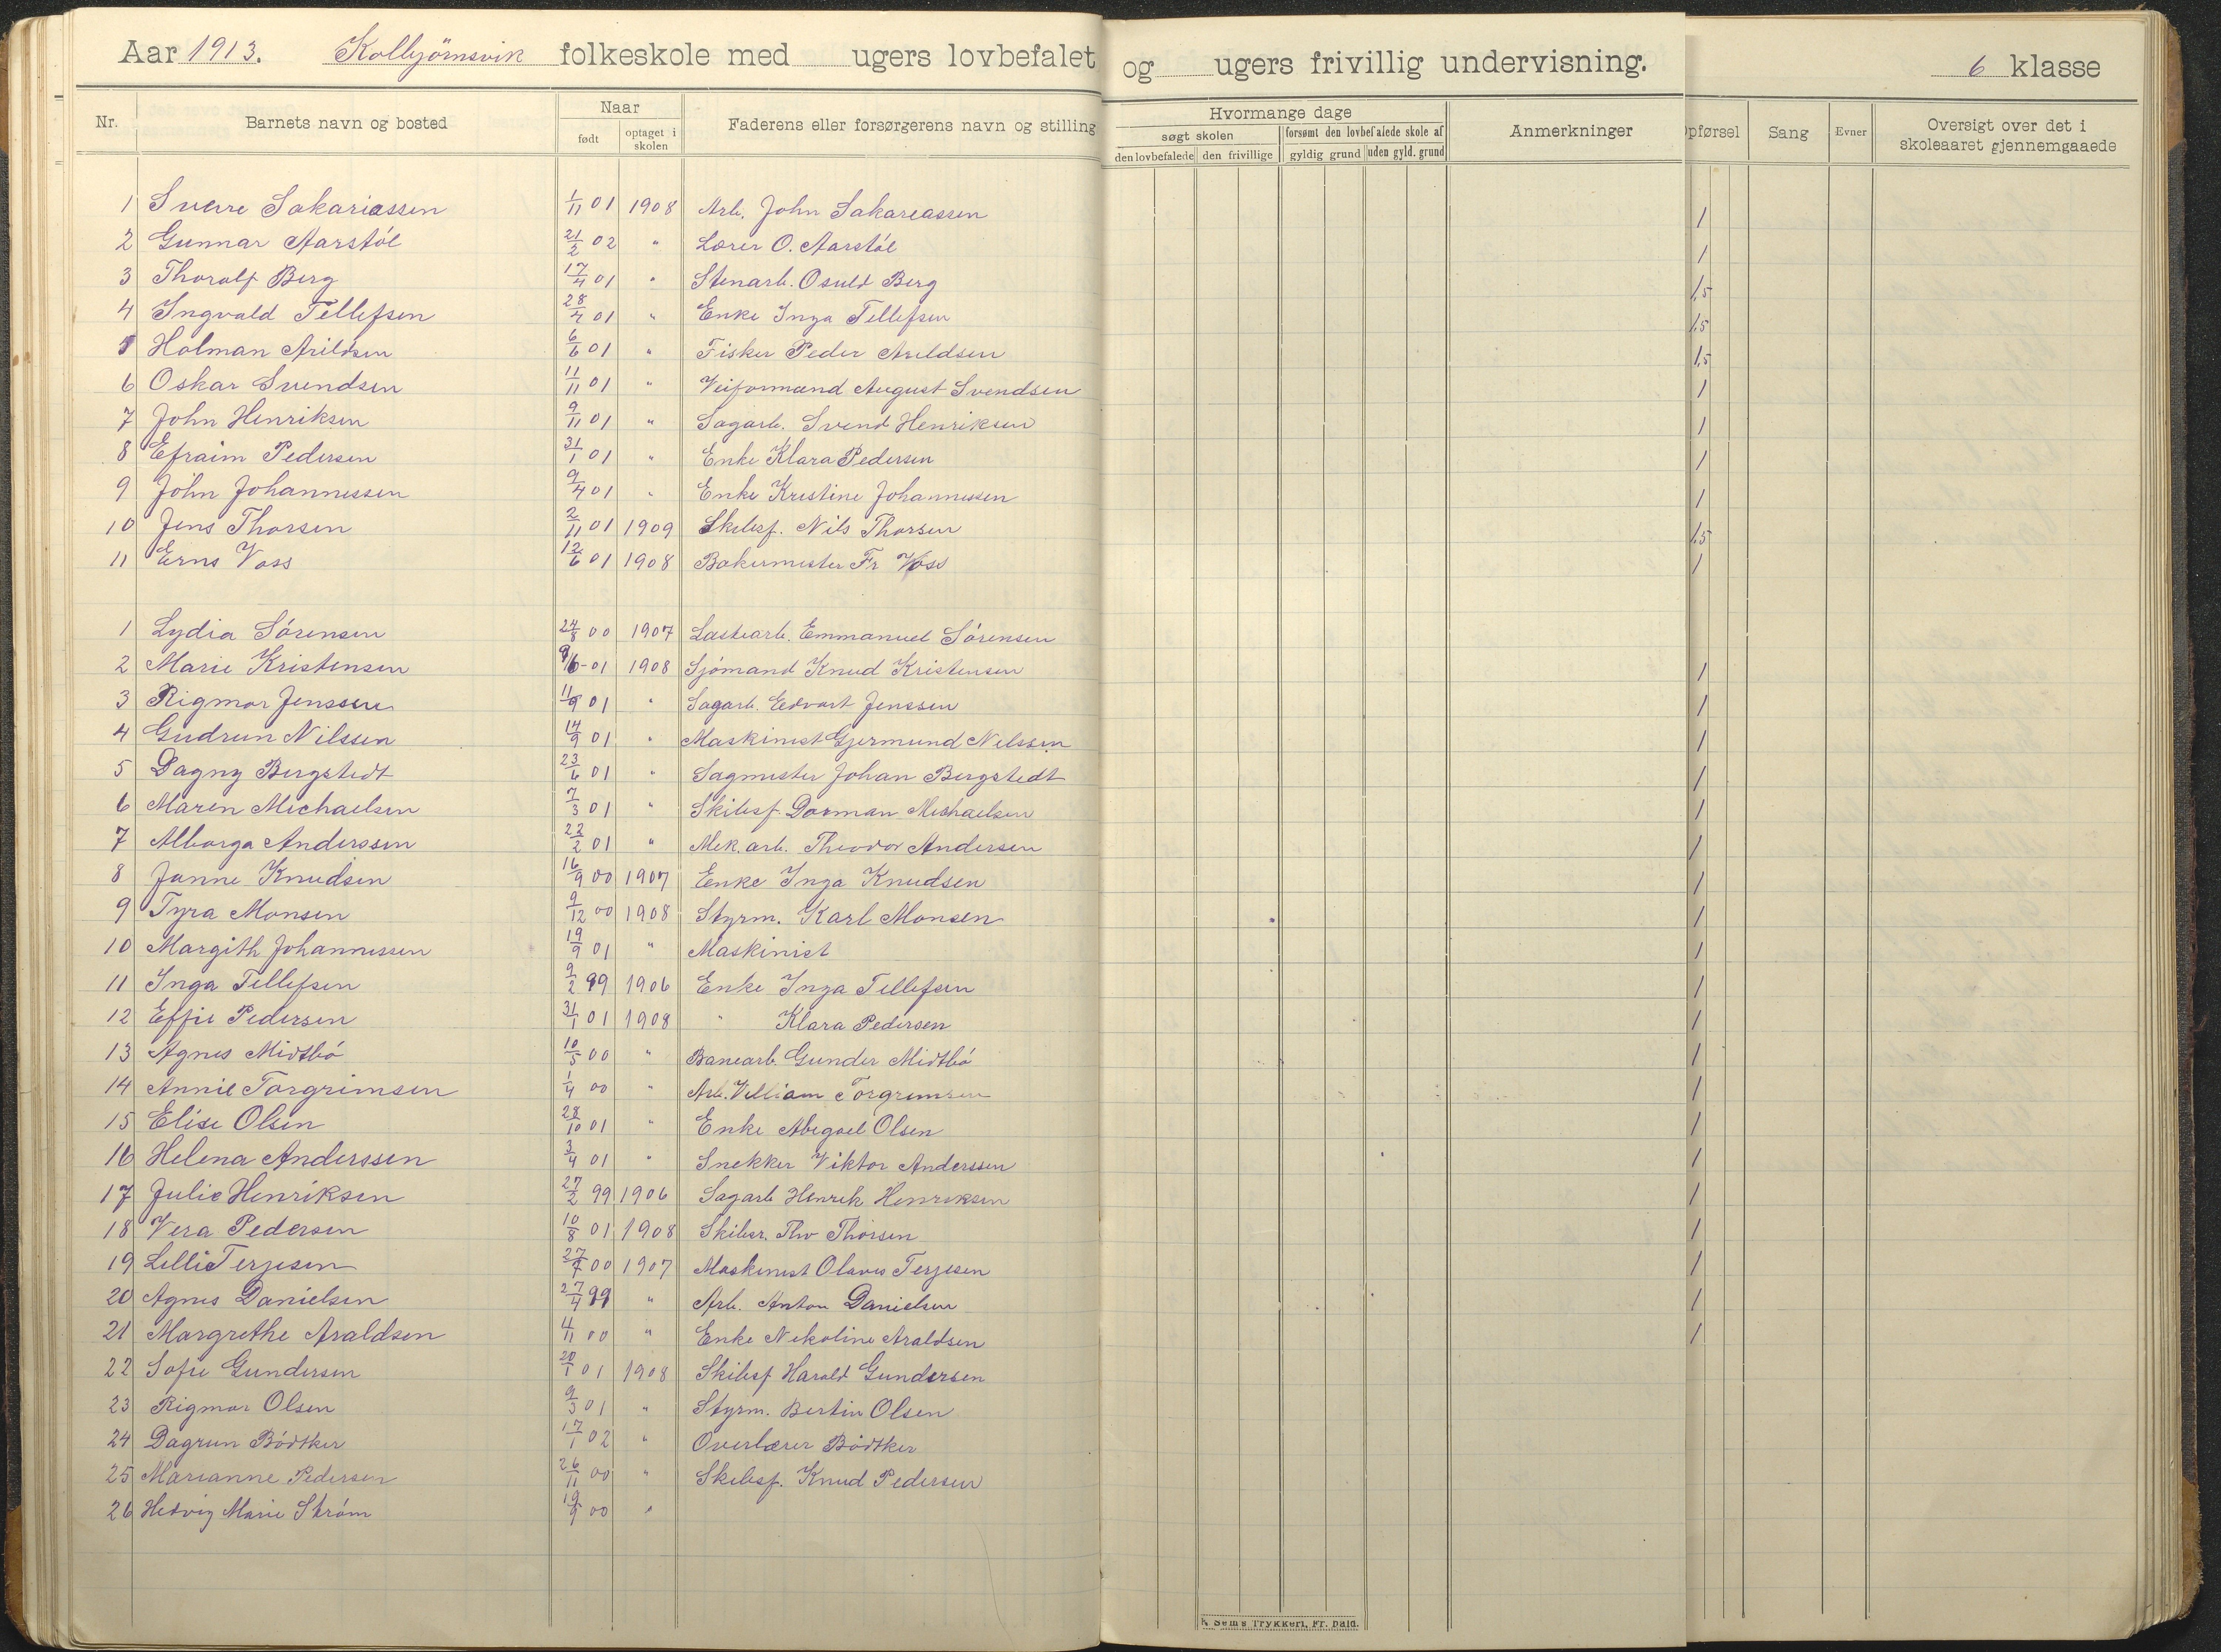 Aar 1913. Kolbjørnsvik folkeskole med ugers lovbefalet og ugers frivillig undervisning. 6 klasse
Nr. Barnets navn og bosted Naar født optaget i skolen Faderens eller forsørgerens navn og stilling Hvormange dage søgt skolen den lovbefalede den frivillige forsømt den lovbefalede skole af gyldig grund uden gyld. grund Anmerkninger Opførsel Sang Evner Oversigt over det i skoleaaret gjennemgaaede
1 Sverre Sakariassen 1/11 01 1908 Arb. John Sakareassen 1
2 Gunnar Aarstöl 21/2 02 " Lærer O. Aarstöl 1
3 Thoralf Berg 17/4 01 " Stenarb. Osuld Berg 1,5
4 Ingvald Tellefsen 28/4 01 " Enke Inga Tellefsen 1,5
5 Holman Arildsen 6/6 01 " Fisker Peder Arildsen 1,5
6 Oskar Svendsen 11/11 01 " Veiformand August Svendsen 1
7 John Henriksen 9/11 01 " Sagarb. Svend Henriksen 1
8 Efraim Pedersen 31/1 01 " Enke Klara Pedersen 1
9 John Johannessen 9/4 01 " Enke Kristine Johannessen 1
10 Jens Thorsen 2/11 01 1909 Skibsf. Nils Thorsen 1,5
11 Erns Voss 12/6 01 1908 Bakermester Fr Voss 1
1 Lydia Sörensen 24/8 00 1907 Lastearb. Emmanuel Sörensen
2 Marie Kristensen 9/6-01 1908 Sjömand Knud Kristensen 1
3 Rigmor Jenssen 11/9 01 " Sagarb. Edvart Jenssen 1
4 Gudrun Nilssen 14/9 01 " Maskinist Gjermund Nilssen 1
5 Dagny Bergstedt 23/6 01 " Sagmester Johan Bergstedt 1
6 Maren Michaelsen 7/3 01 " Skibsf. Dorman Michaelsen 1
7 Alborga Anderssen 22/2 01 " Mek. arb. Theodor Andersen 1
8 Janne Knudsen 16/9 00 1907 Enke Inga Knudsen 1
9 Tyra Monsen 9/12 00 1908 Styrm. Karl Monsen 1
10 Margith Johannessen 19/9 01 " Maskinist 1
11 Inga Tellefsen 9/2 99 1906 Enke Inga Tellefsen 1
12 Effie Pedersen 31/1 01 1908 " Klara Pedersen 1
13 Agnes Midtbö 10/5 00 " Banearb. Gunder Midtbö 1
14 Annie Torgrimsen 1/4 00 " Arb. Villiam Torgrimsen 1
15 Elise Olsen 28/10 01 " Enke Abigael Olsen 1
16 Helena Anderssen 3/4 01 " Snekker Viktor Anderssen 1
17 Julie Henriksen 27/2 99 1906 Sagarb Henrik Henriksen 1
18 Vera Pedersen 10/8 01 1908 Skibsr. Thv Thorsen 1
19 Lilli Terjesen 27/7 00 1907 Maskinist Olaves Terjesen 1
20 Agnes Danielsen 27/4 99 " Arb. Anton Danielsen 1
21 Margrethe Araldsen 4/11 00 " Enke Nekoline Araldsen 1
22 Sofie Gundersen 20/1 01 1908 Skibsf Harald Gundersen
23 Rigmor Olsen 9/5 01 " Styrm. Bertin Olsen
24 Dagrun Bödtker 17/1 02 " Overlærer Bödtker
25 Marianne Pedersen 26/11 00 " Skibsf. Knud Pedersen
26 Hedvig Marie Ström 19/9 00 "
Sem's Trykkeri, Fr. hald.